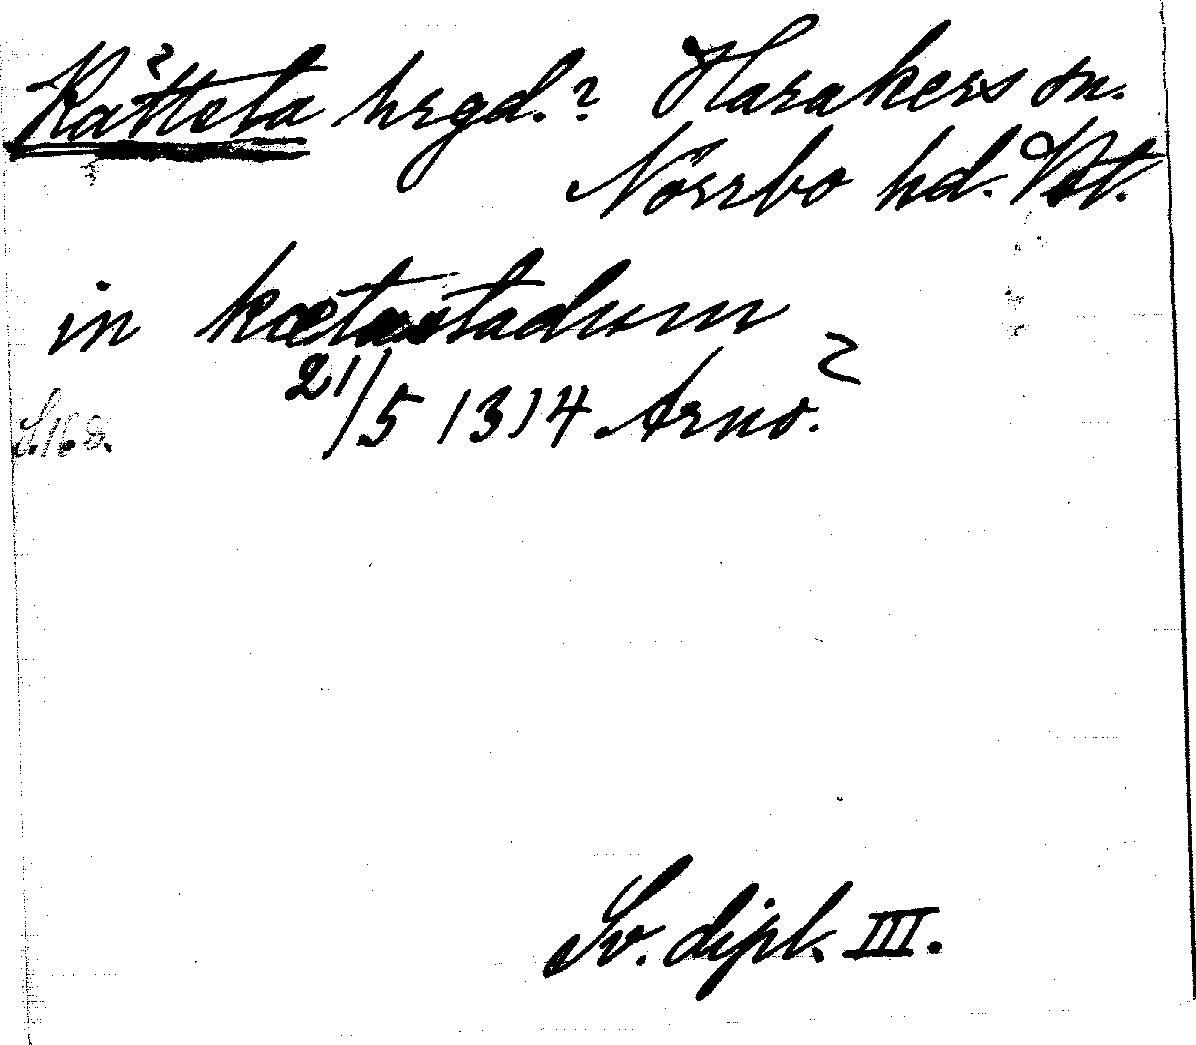 Kättsta hrgd.? Harakers sn.
Norrbo hd. Vstm.
in kætastadum
21/5 1314 Arnö.
S. 168.
Sv. dipl. III.